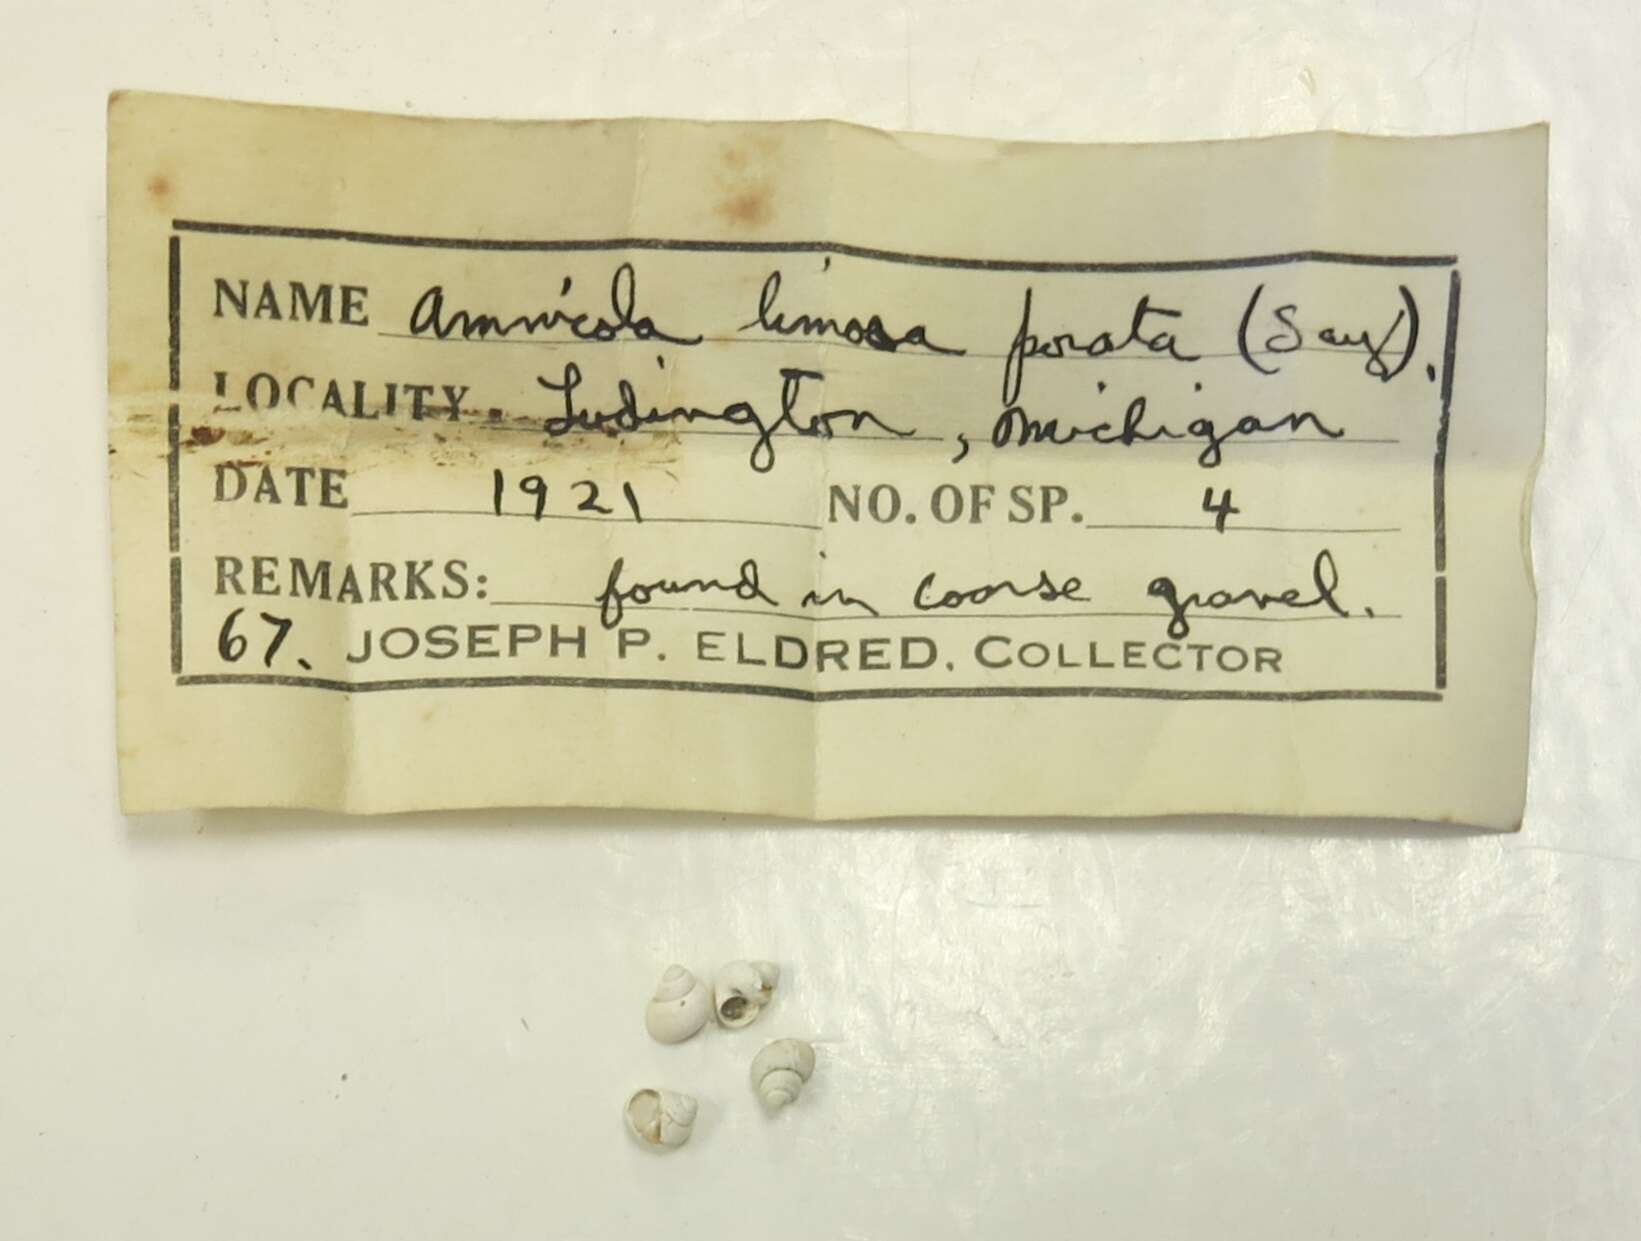 NAME Amnicola limosa porata (Say).
LOCALITY. Ludington, Michigan
DATE 1921 NO. OF SP. 4
REMARKS: found in coarse gravel.
67. JOSEPH P. ELDRED. COLLECTOR